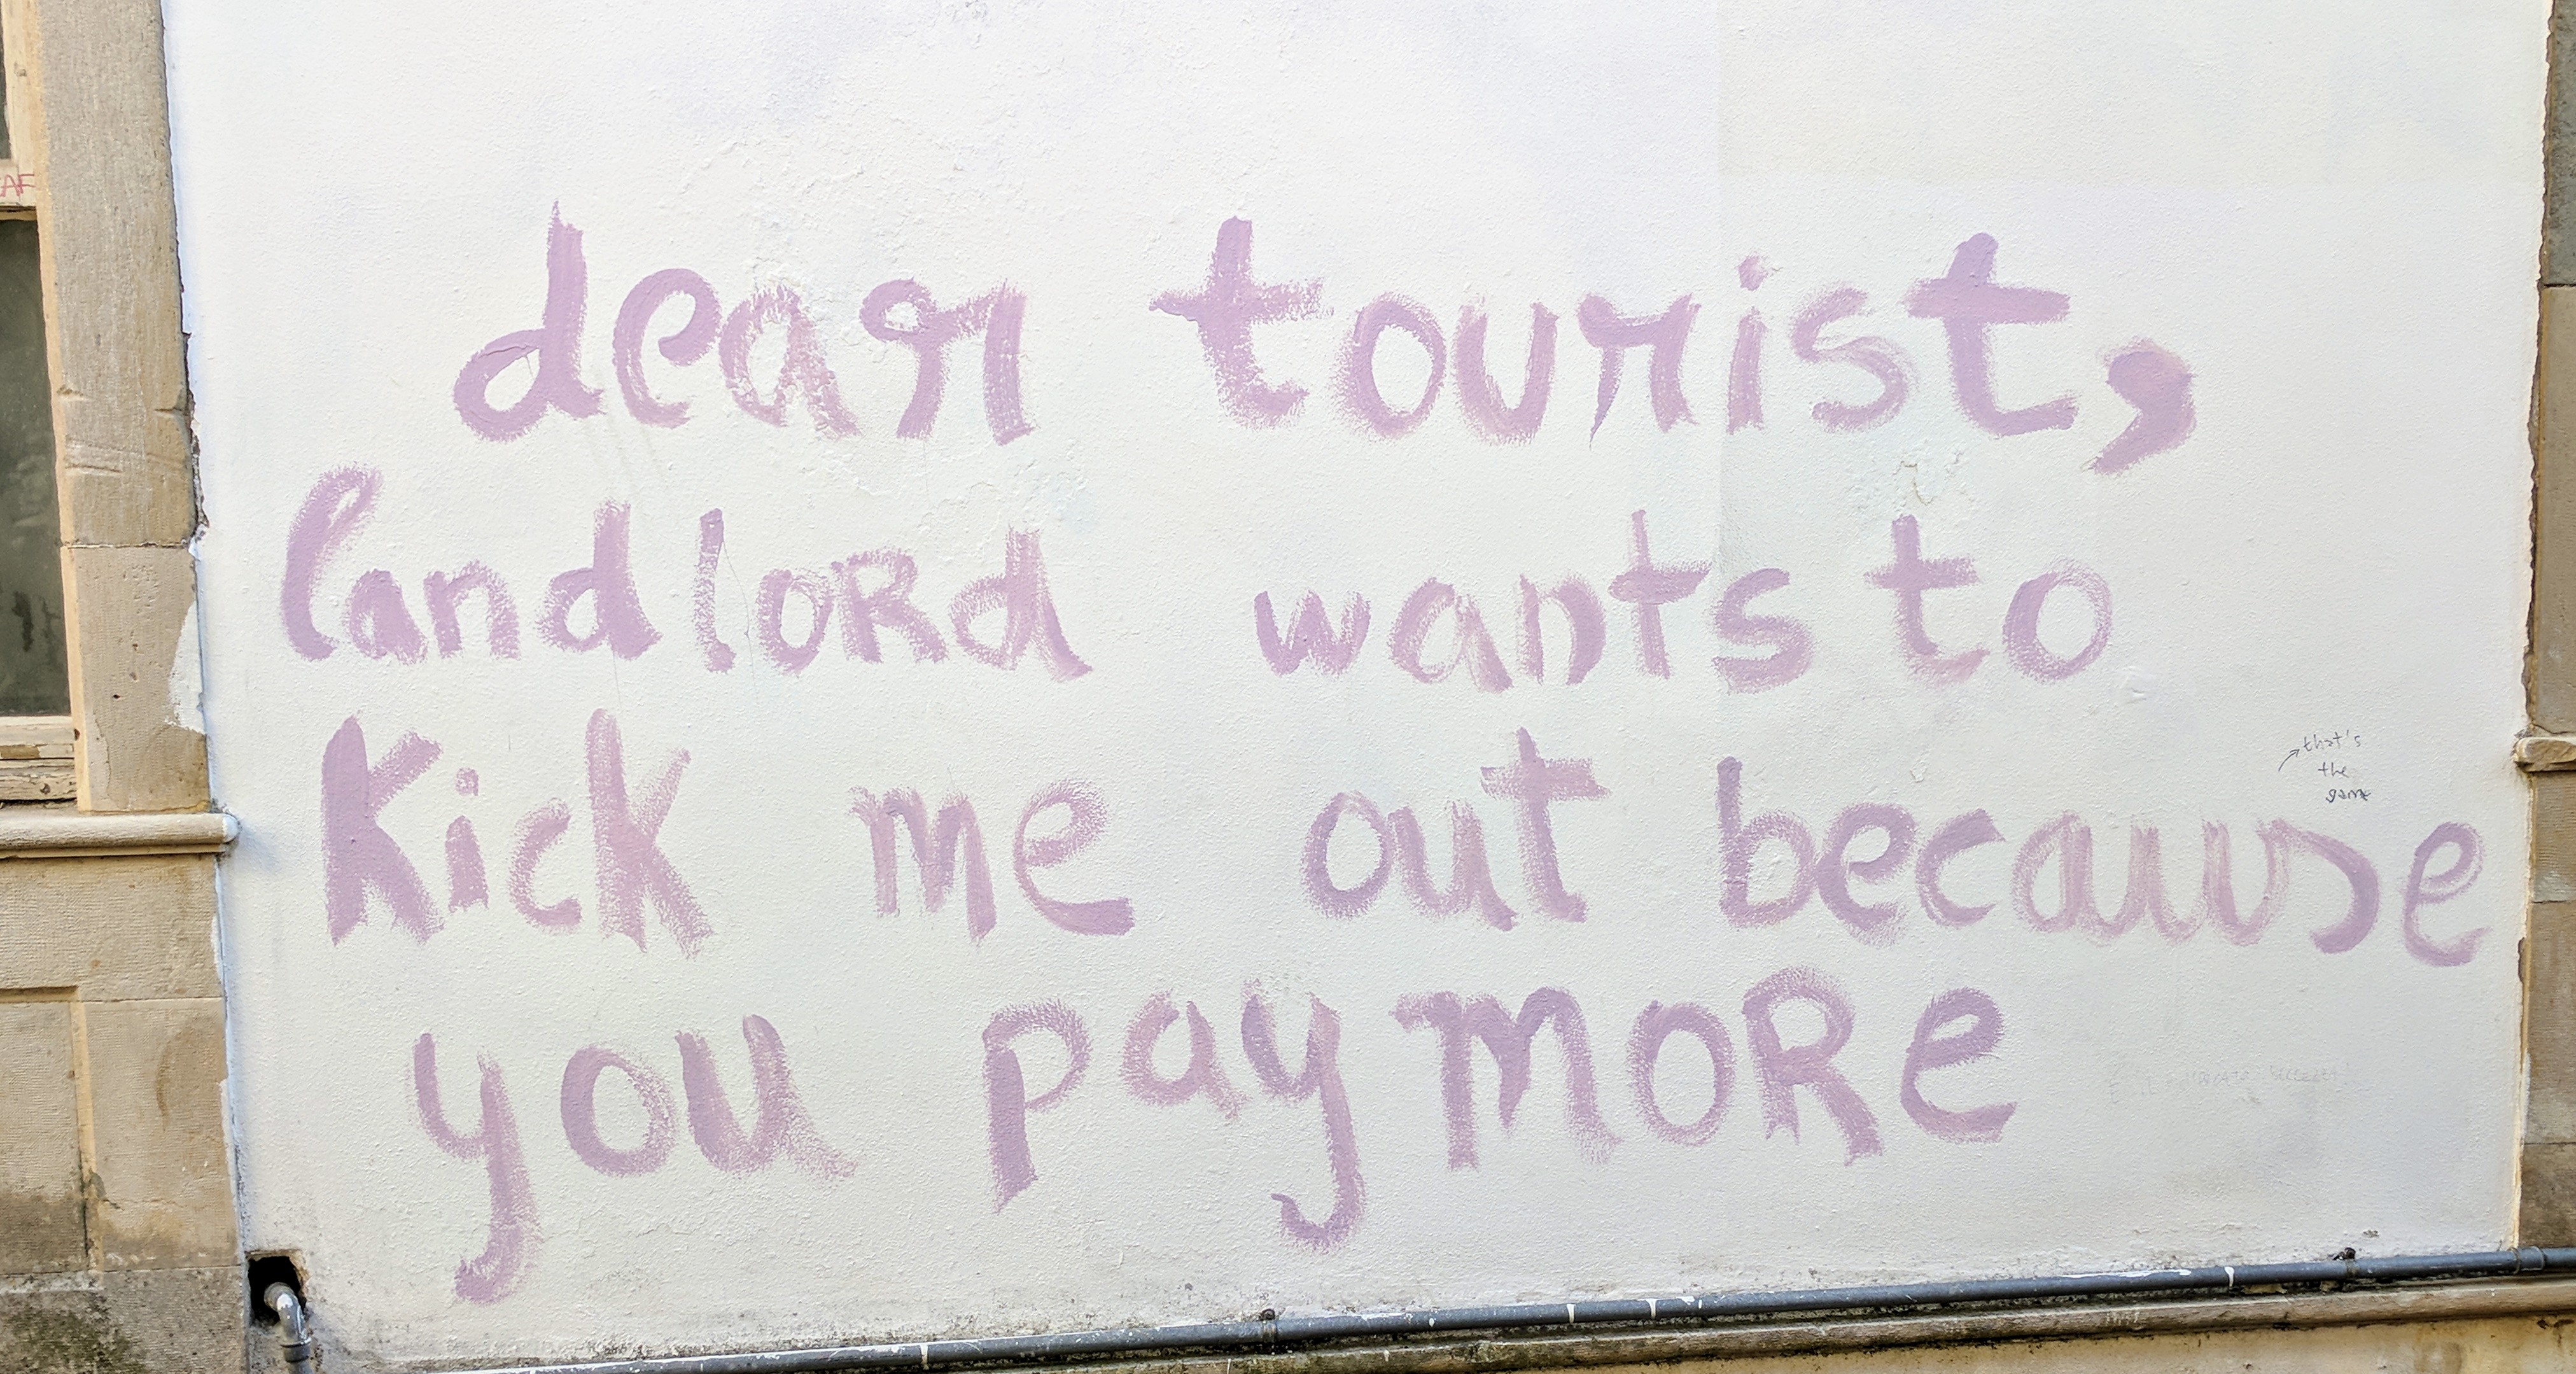 dear tourist,
landlord wants to
Kick me out because
you pay moRe
that's
the
game